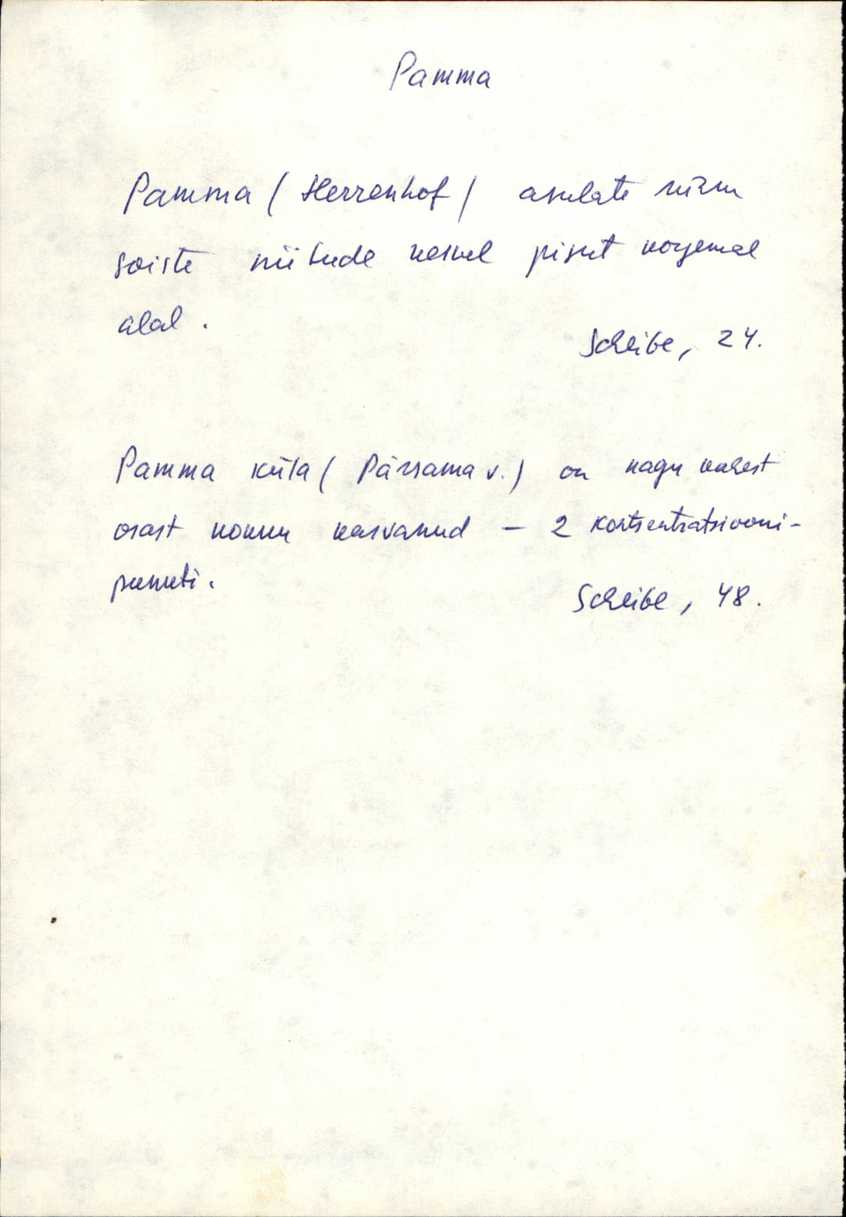 Pamma
Pamma (Herrenhof) asulate rürm
soiste niitude keskel pisut korgemal
alal.
Scheibe, 24.
Pamma küla (Pärsama v.) on nagu kahest
osast kokku kasvanud – 2 kontsentratsiooni-
punkti.
Scheibe, 48.